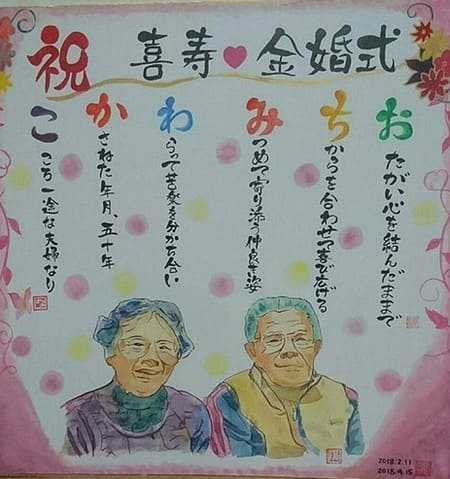 祝 喜寿♥金婚式
おたがい心を結んだままで
ちからを合わせて喜び広げる
みつめて寄り添う仲良き姿
わらって苦楽を分かち合い
かさねた年月、五十年
こころ一途な夫婦なり
2018.2.11
2018.4.15